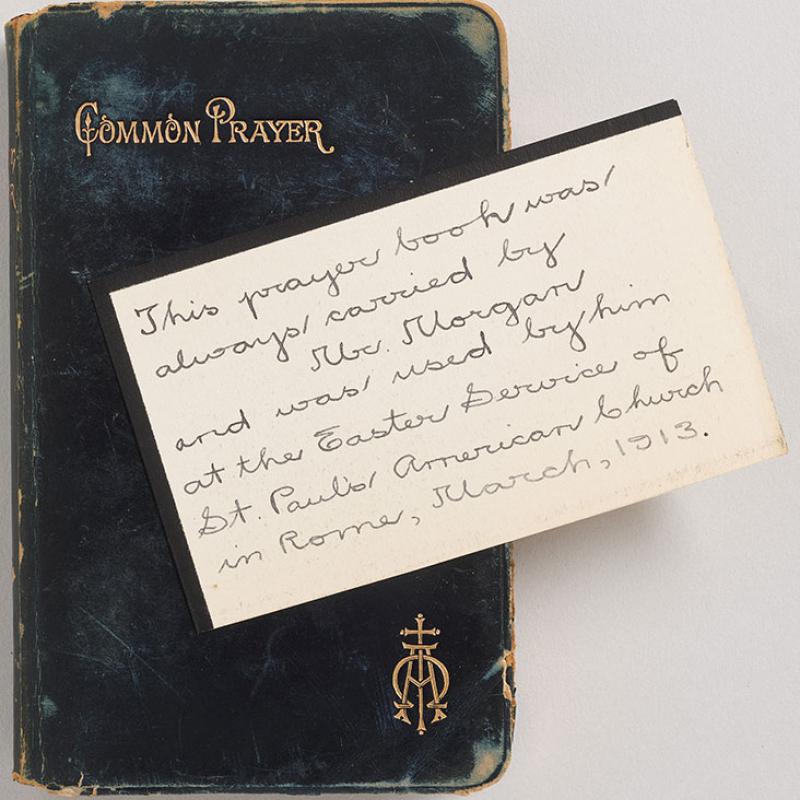 COMMON PRAYER
This prayer book was
always carried by
Mr. Morgan
and was used by him
at the Easter Service of
St. Paul's American Church
in Rome, March, 1913.